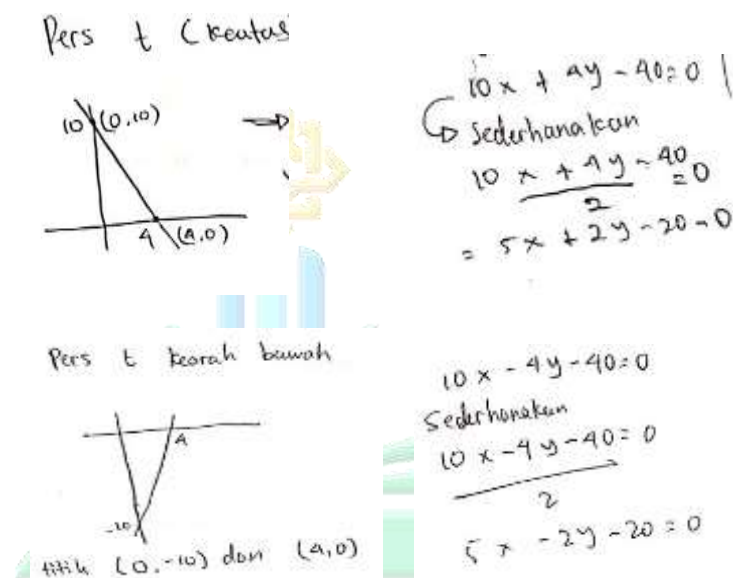 Pers t (keatas
10 (0,10)
4 (4,0)
10x + 4y - 40 = 0
Sederhanakan
10 x + 4y - 40 = 0
2
= 5x + 2y - 20 = 0
Pers t kearah bawah
4
-10
titik (0,-10) dan (4,0)
10x - 4y - 40 = 0
Sederhanakan
10x - 4y - 40 = 0
2
5x - 2y - 20 = 0